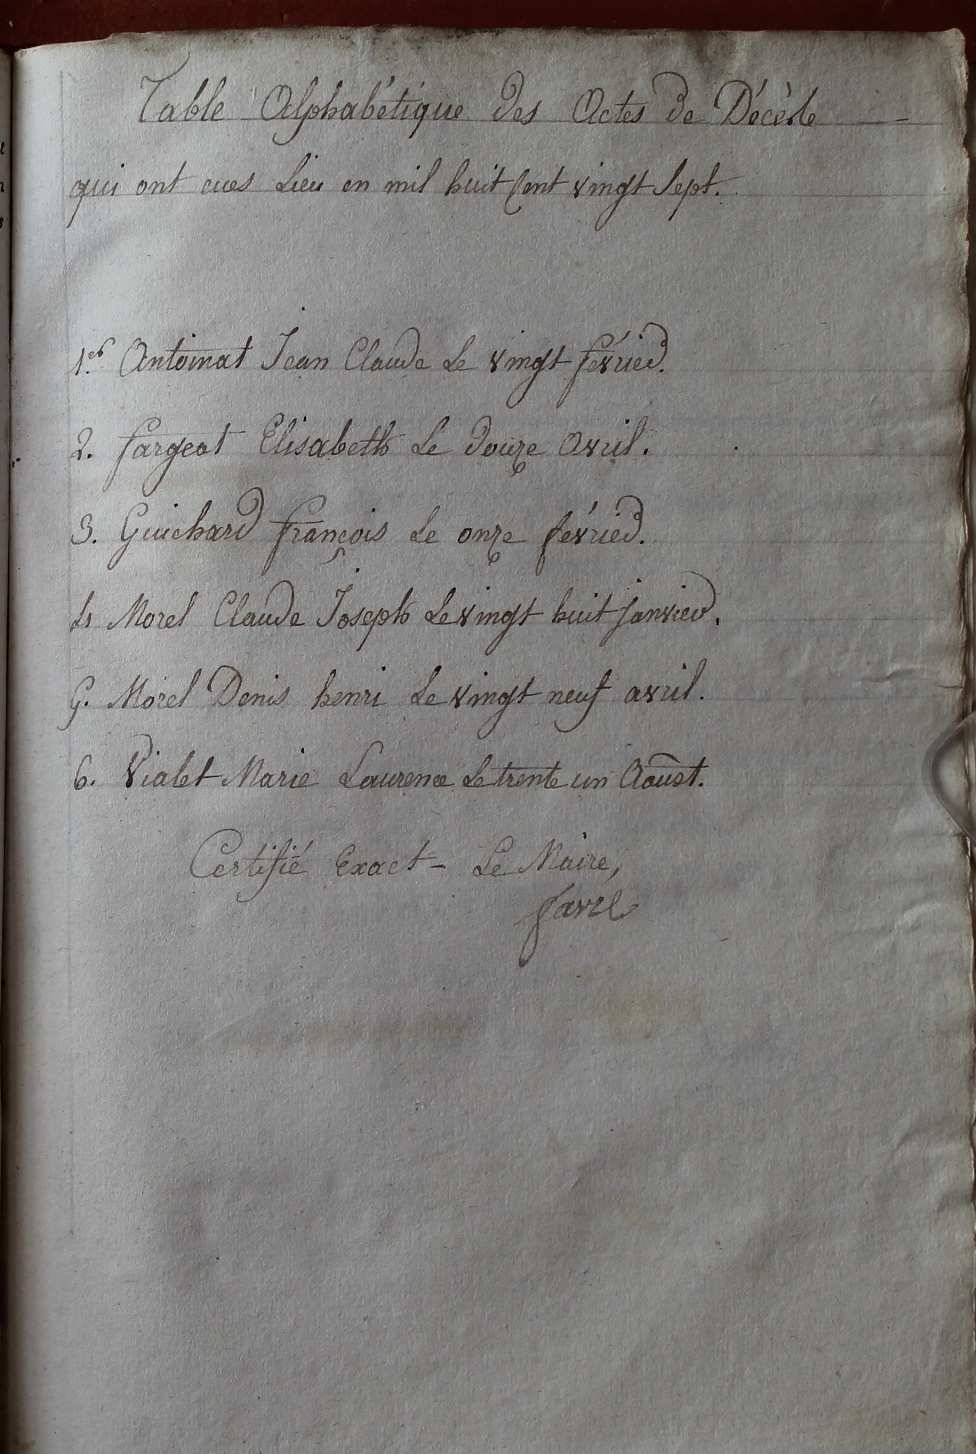 Table Alphabétique des Actes de Décède
qui ont eues Lieu en mil huit Cent vingt Sept.
1.er Antoinat Jean Claude Le vingt février.
2. fargeot Elisabeth Le douze Avril.
3. Guichard françois Le onze février.
4 Morel Claude Joseph Le vingt huit janvier.
5. Morel Denis henri Le vingt neuf avril.
6. Vialet Marie Laurence Le trente un Aoust.
Certifié Exact - Le Maire,